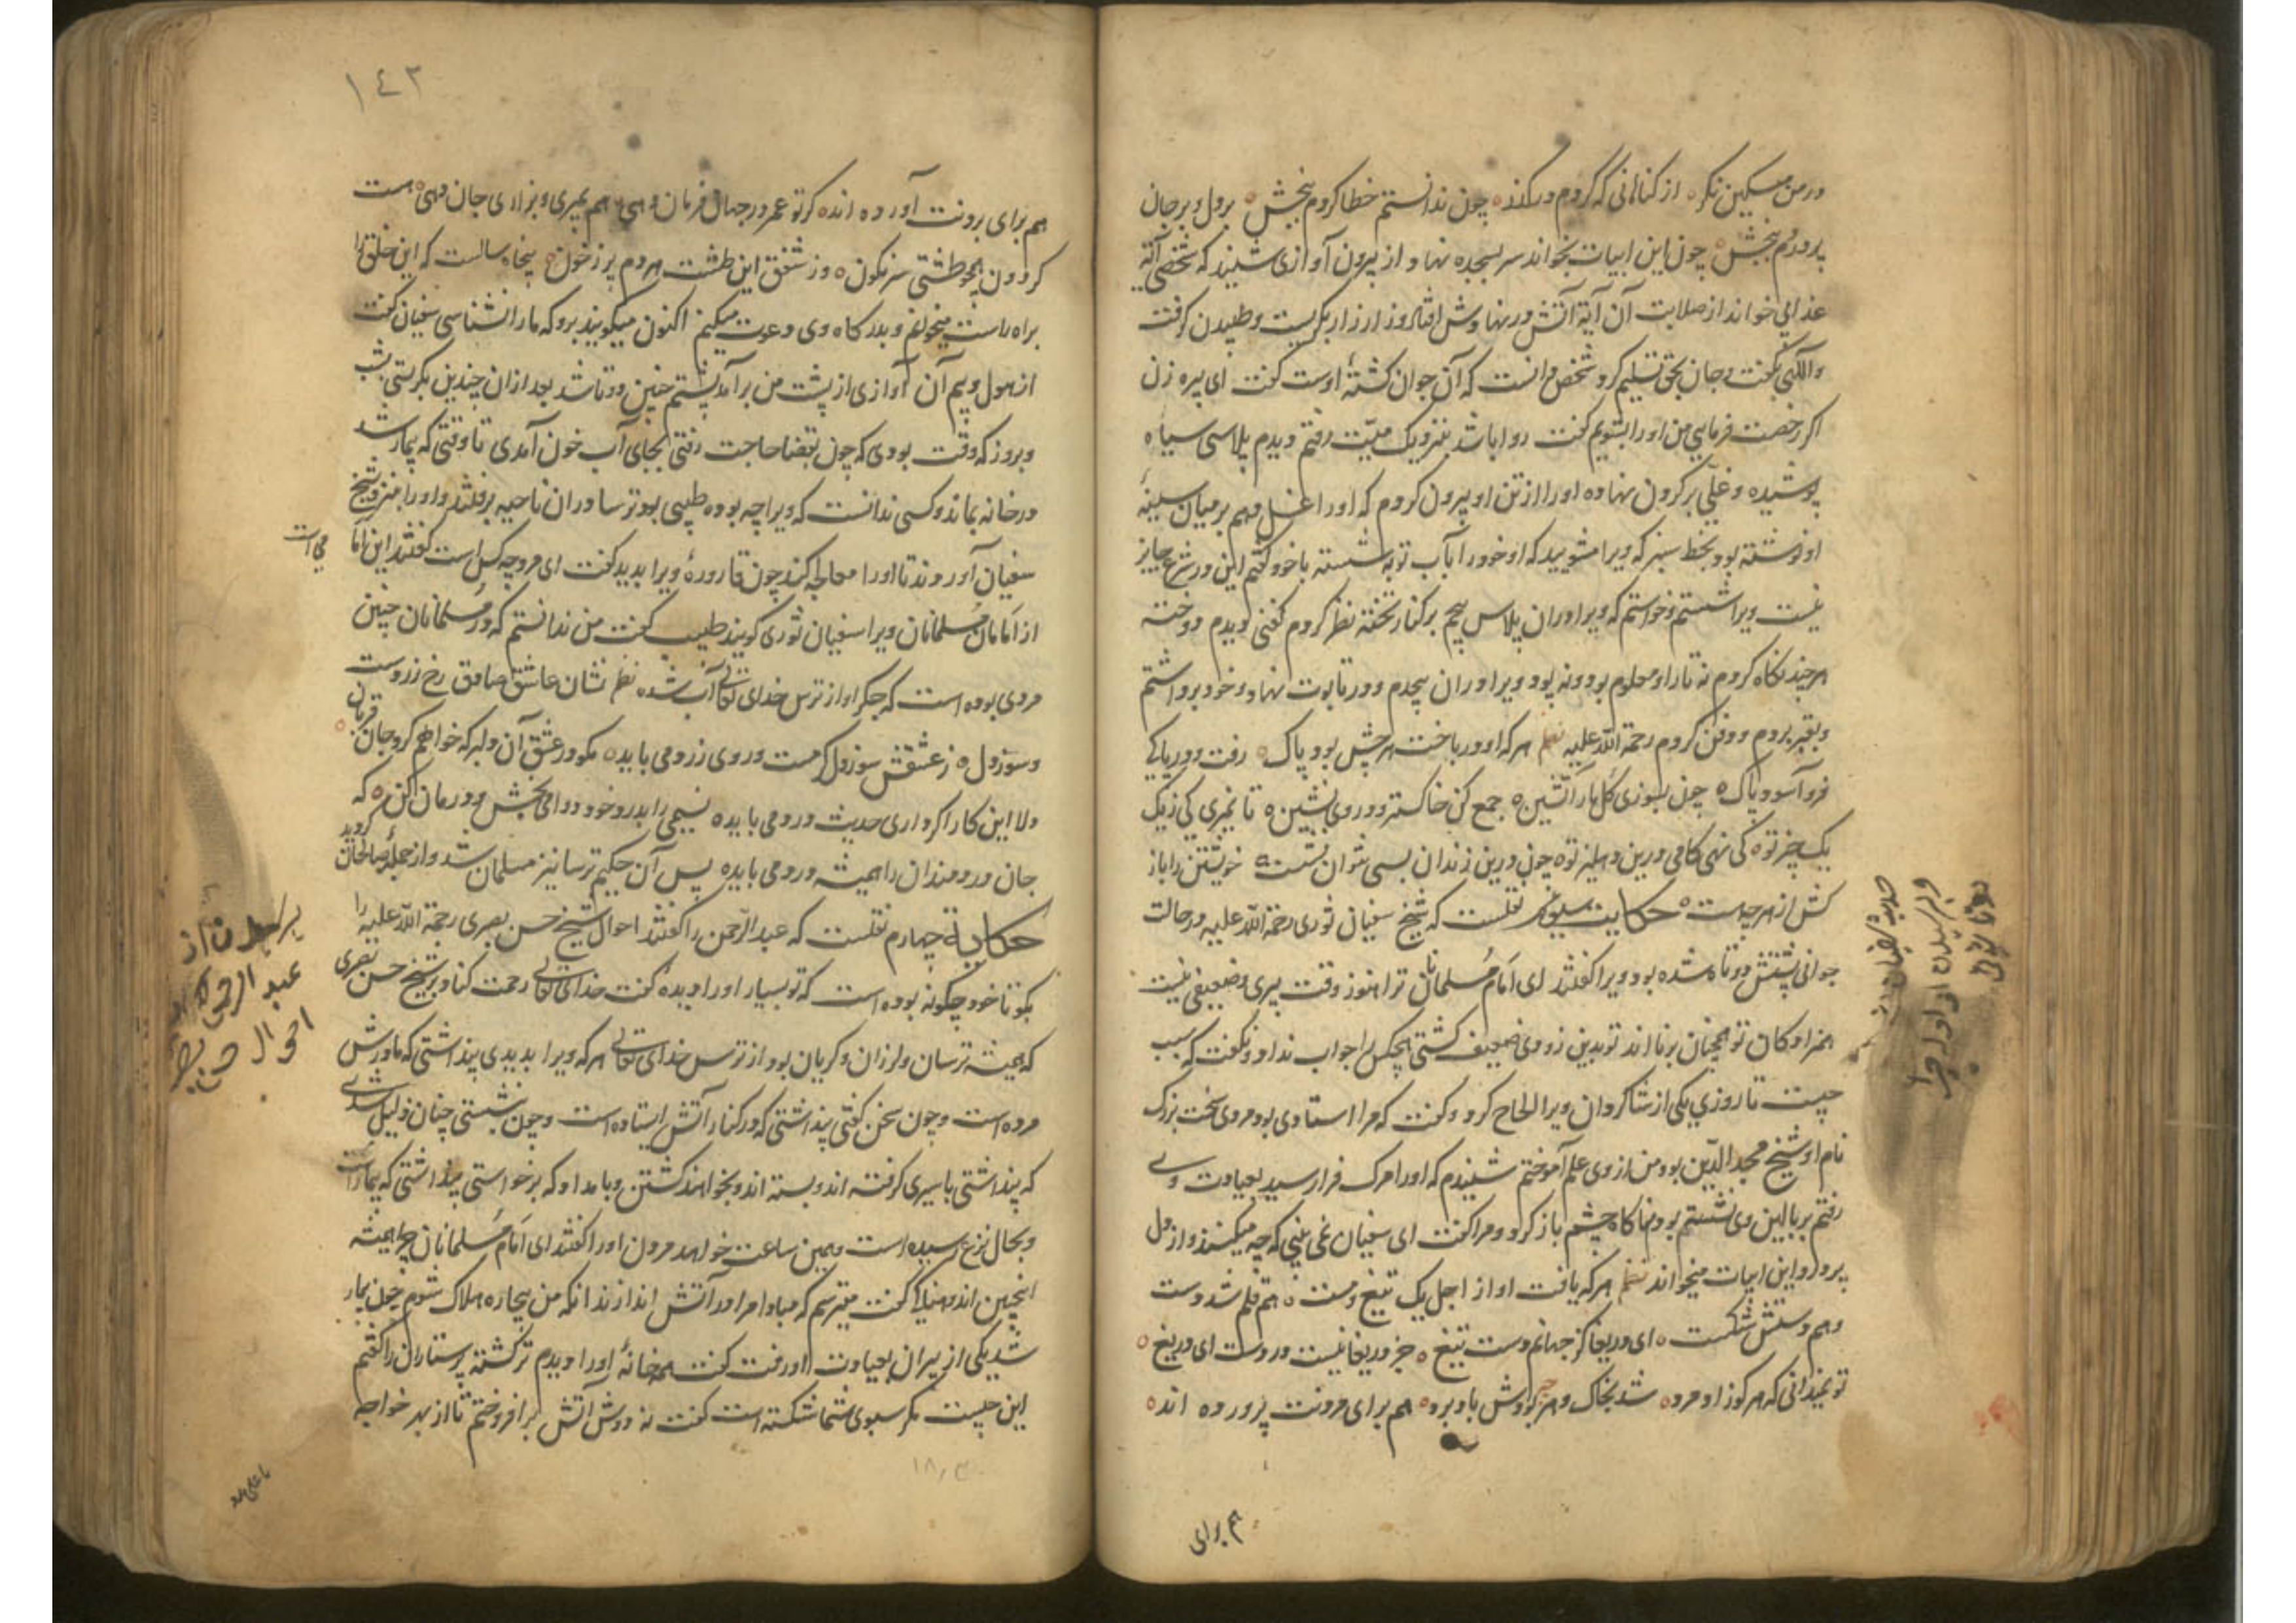 در من مسکین نکر از کناهانی که کردم درکذر چون ندانستم خطا کردم ببخش بر دل و بر جان
پر دردم ببخش چون این ابیات بخواند سر بسجده نهاد و از بیرون آوازی شنید که شخصی آیة
عذابی خواند از صلابت آن آیة آتش در نهادش افتاد و زار زار بکریست و طپیدن کرفت
و اللهی بکفت و جان بحق تسلیم کرد شخص دانست که آن جوان کشتۀ اوست کفت ای پیره زن
اکر رخصت فرمایی من اورا بشویم کفت روا باشد بنزدیک میّت رفتم دیدم پلاسی سیاه
پوشیده و غلّی بر کردن نهاده اورا از تن او بیرون کردم که اورا غسل دهم بر میان سینۀ
او نوشته بود بخط سبز که ویرا مشویید که او خود را بآب توبه شسته با خود کفتم این در شرع جایز
نیست ویرا شستم و خواستم که ویرا در ان پلاس پیچم بر کنار تخته نظر کردم کفنی دیدم دوخته
هر چند نکاه کردم نه تار او معلوم بود و نه پود ویرا در ان پیچدم و در تابوت نهاد و خود برداشتم
و بقبر بردم و دفن کردم رحمة اللّه علیه نظم هر که او در باخت هر چش بود پاک رفت در دریای
فرو آسود پاک چون بسوزی کل بار آتشین جمع کن خاکستر و در وی نشین تا نمیری کی زیک
یک چیز تو کی نهی کامی درین دهلیز تو چون درین زندان بسی نتوان نشست خویشتن را باز
کش از هر چه هست حکایت سیوم نقلست که شیخ سفیان ثوری رحمة اللّه علیه در حالت
جوانی پشتش دوتاه شده بود ویرا کفتند ای اَمام مُسلمانان ترا هنوز وقت پیری و ضعیفی نیست
همزادکان تو همچنان برنا اند تو بدین زودی ضعیف کشتی هیچکس را جواب نداد و نکفت که سبب
چیست تا روزي یکی از شاکردان ویرا الحاح کرد و کفت که مرا استادی بود مردی سخت بزرک
نام او شیخ مجد الدّین بود من از وی علم آموختم شنیدم که اورا مرک فرا رسید بعیادت وی
رفتم بر بالین وی نشستم بودم ناکاه چشم باز کرد و مرا کفت ای سفیان نمی بینی که چه میکنند و از دل
پر درد این ابیات میخواند نظم هر که یافت او از اجل یک تیغ دست هم قلم شد دست
و هم دستش شکست ای دریغا کز جهانم دست تیغ جز دریغا نیست در دست ای دریغ
تو نمیدانی که هر کو زاد مرد شد بخاک و هر چه بودش باد برد هم برای مردنت پرورده اند
هم برای
١٤٣
هم برای بردنت آورده اند کر تو عمر در جهان فرمان دهی هم بمیری و بزاری جان دهی هست
کردون همچو طشتی سرنکون وز شفق این طشت هر دم پر زخون پنجاه سالست که این خلق را
براه راست میخوانم و بدرکاه وی دعوت میکنم اکنون میکویند برو که ما را نشناسی سفیان کفت
از هول و بیم آن آوازی از پشت من برآمد پشتم چنین دوتا شد بعد از ان چندین بکریستی بشب
و بروز که وقت بودی که چون بقضا حاجت رفتی بجای آب خون آمدی تا وقتی که بیمار شد
در خانه بماند و کسی ندانست که ویرا چه بوده طبیبی بود ترسا در ان ناحیه برفتند و اورا بنزد شیخ
سفیان آوردند تا اورا معالجه کند چون قارورۀ ویرا بدید کفت ای مرد چه کس است کفتند این اَمامی است
از اَمامان مُسلمانان ویرا سفیان ثوری کویند طبیب کفت من ندانستم که در مُسلمانان چنین
مردی بوده است که جکر او از ترس خدای تعالی آب شده نظم نشان عاشق صادق رخ زردست
و سوز دل ز عشقش سوز دل کر هست و روی زرد می باید مکو در عشق آن دلبر که خواهم کرد جان قربان
دلا این کار اکر داری حدیث درد می باید نسیمی را بدرد خود دوامی بخش و درمان کن که
جان دردمندان را همیشه درد می باید پس آن حکیم ترسا نیز مسلمان شد و از جملۀ صالحان کردید
حکایة چهارم نقلست که عبد الرّحمن را کفتند احوال شیخ حسن بصری رحمة اللّه علیه را
بکو تا خود چکونه بوده است که تو بسیار اورا دیدۀ کفت خدای تعالی رحمت کناد بر شیخ حسن بصری
که همیشه ترسان و لرزان و کریان بود از ترس خدای تعالی هر که ویرا بدیدی پنداشتی که مادرش
مرده است و چون سخن کفتی پنداشتی که در کنار آتش ایستاده است و چون نشستی چنان ذلیل شدی
که پنداشتی باسیری کرفته اند و بسته اند و بخواهند کشتن و بامداد که برخواستی پنداشتی که بیمار است
و بحال نزع رسیده است و همین ساعت خواهد مردن اورا کفتند ای اَمام مُسلمانان چرا همیشه
اینچنین اندوهناکی کفت میترسم که مبادا مرا در آتش اندازند انکه من بیچاره هلاک شوم چون بیمار
شد یکی از پیران بعیادت او رفت کفت همه خانۀ اورا دیدم تر کشته پرستاران را کفتم
این چیست مکر سبوی شما شکسته است کفت نه دوش آتش بر افروختم تا از بهر خواجه